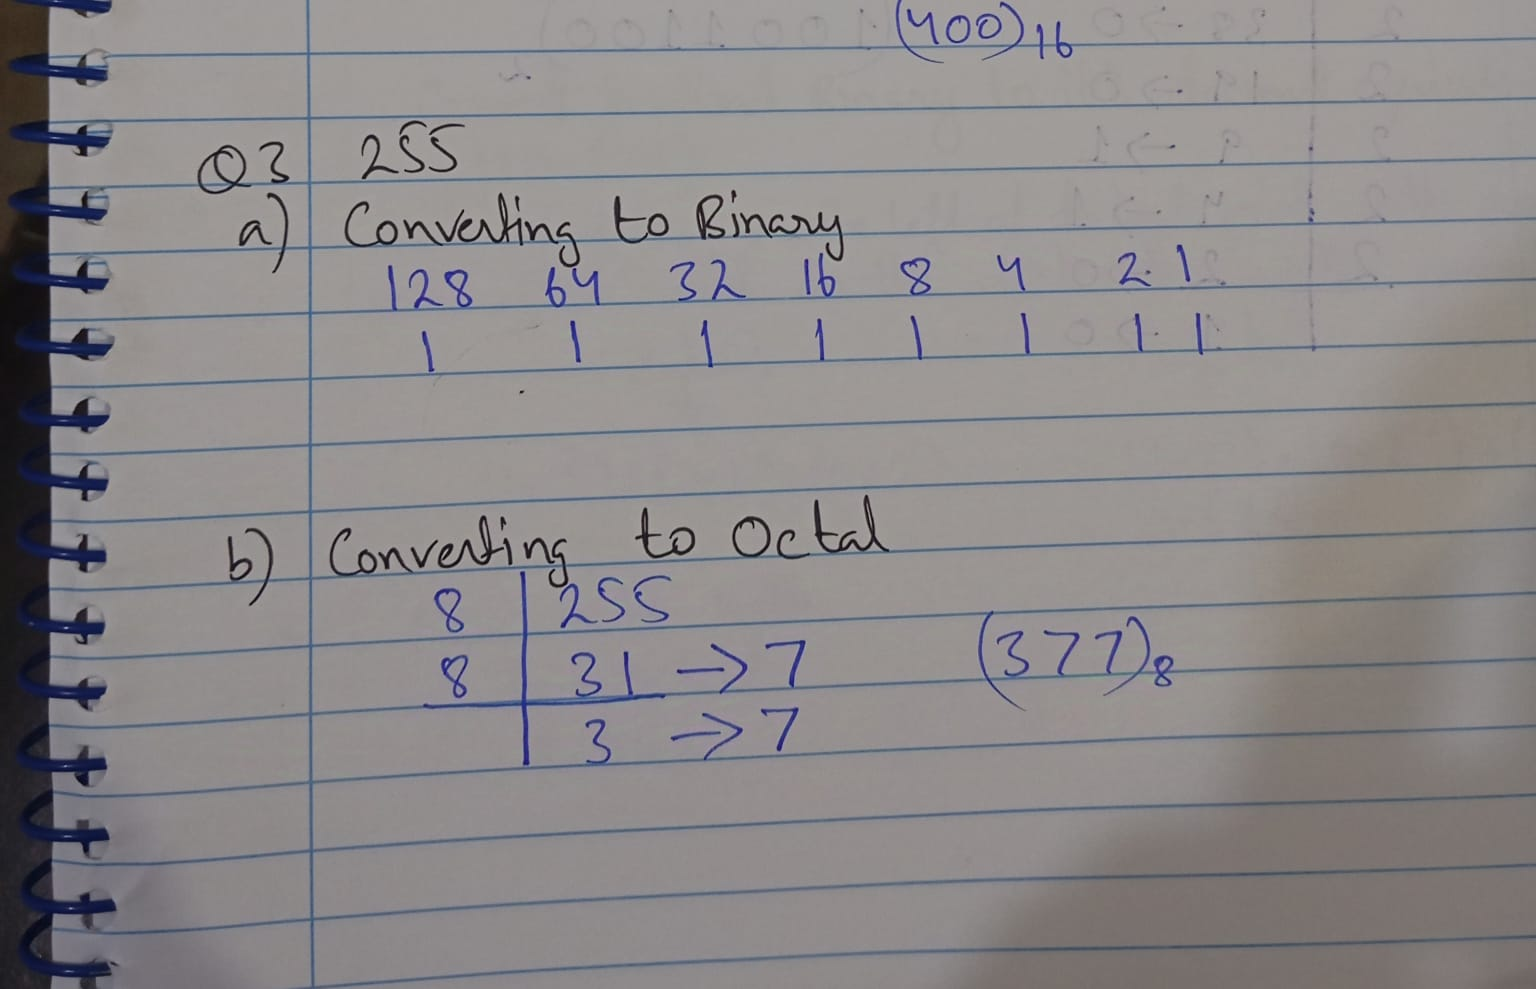 (400)16
Q3 255
a) Converting to Binary
128 64 32 16 8 4 2 1
1 1 1 1 1 1 1 1
b) Converting to Octal
8 255
8 31 → 7 (377)8
3 → 7